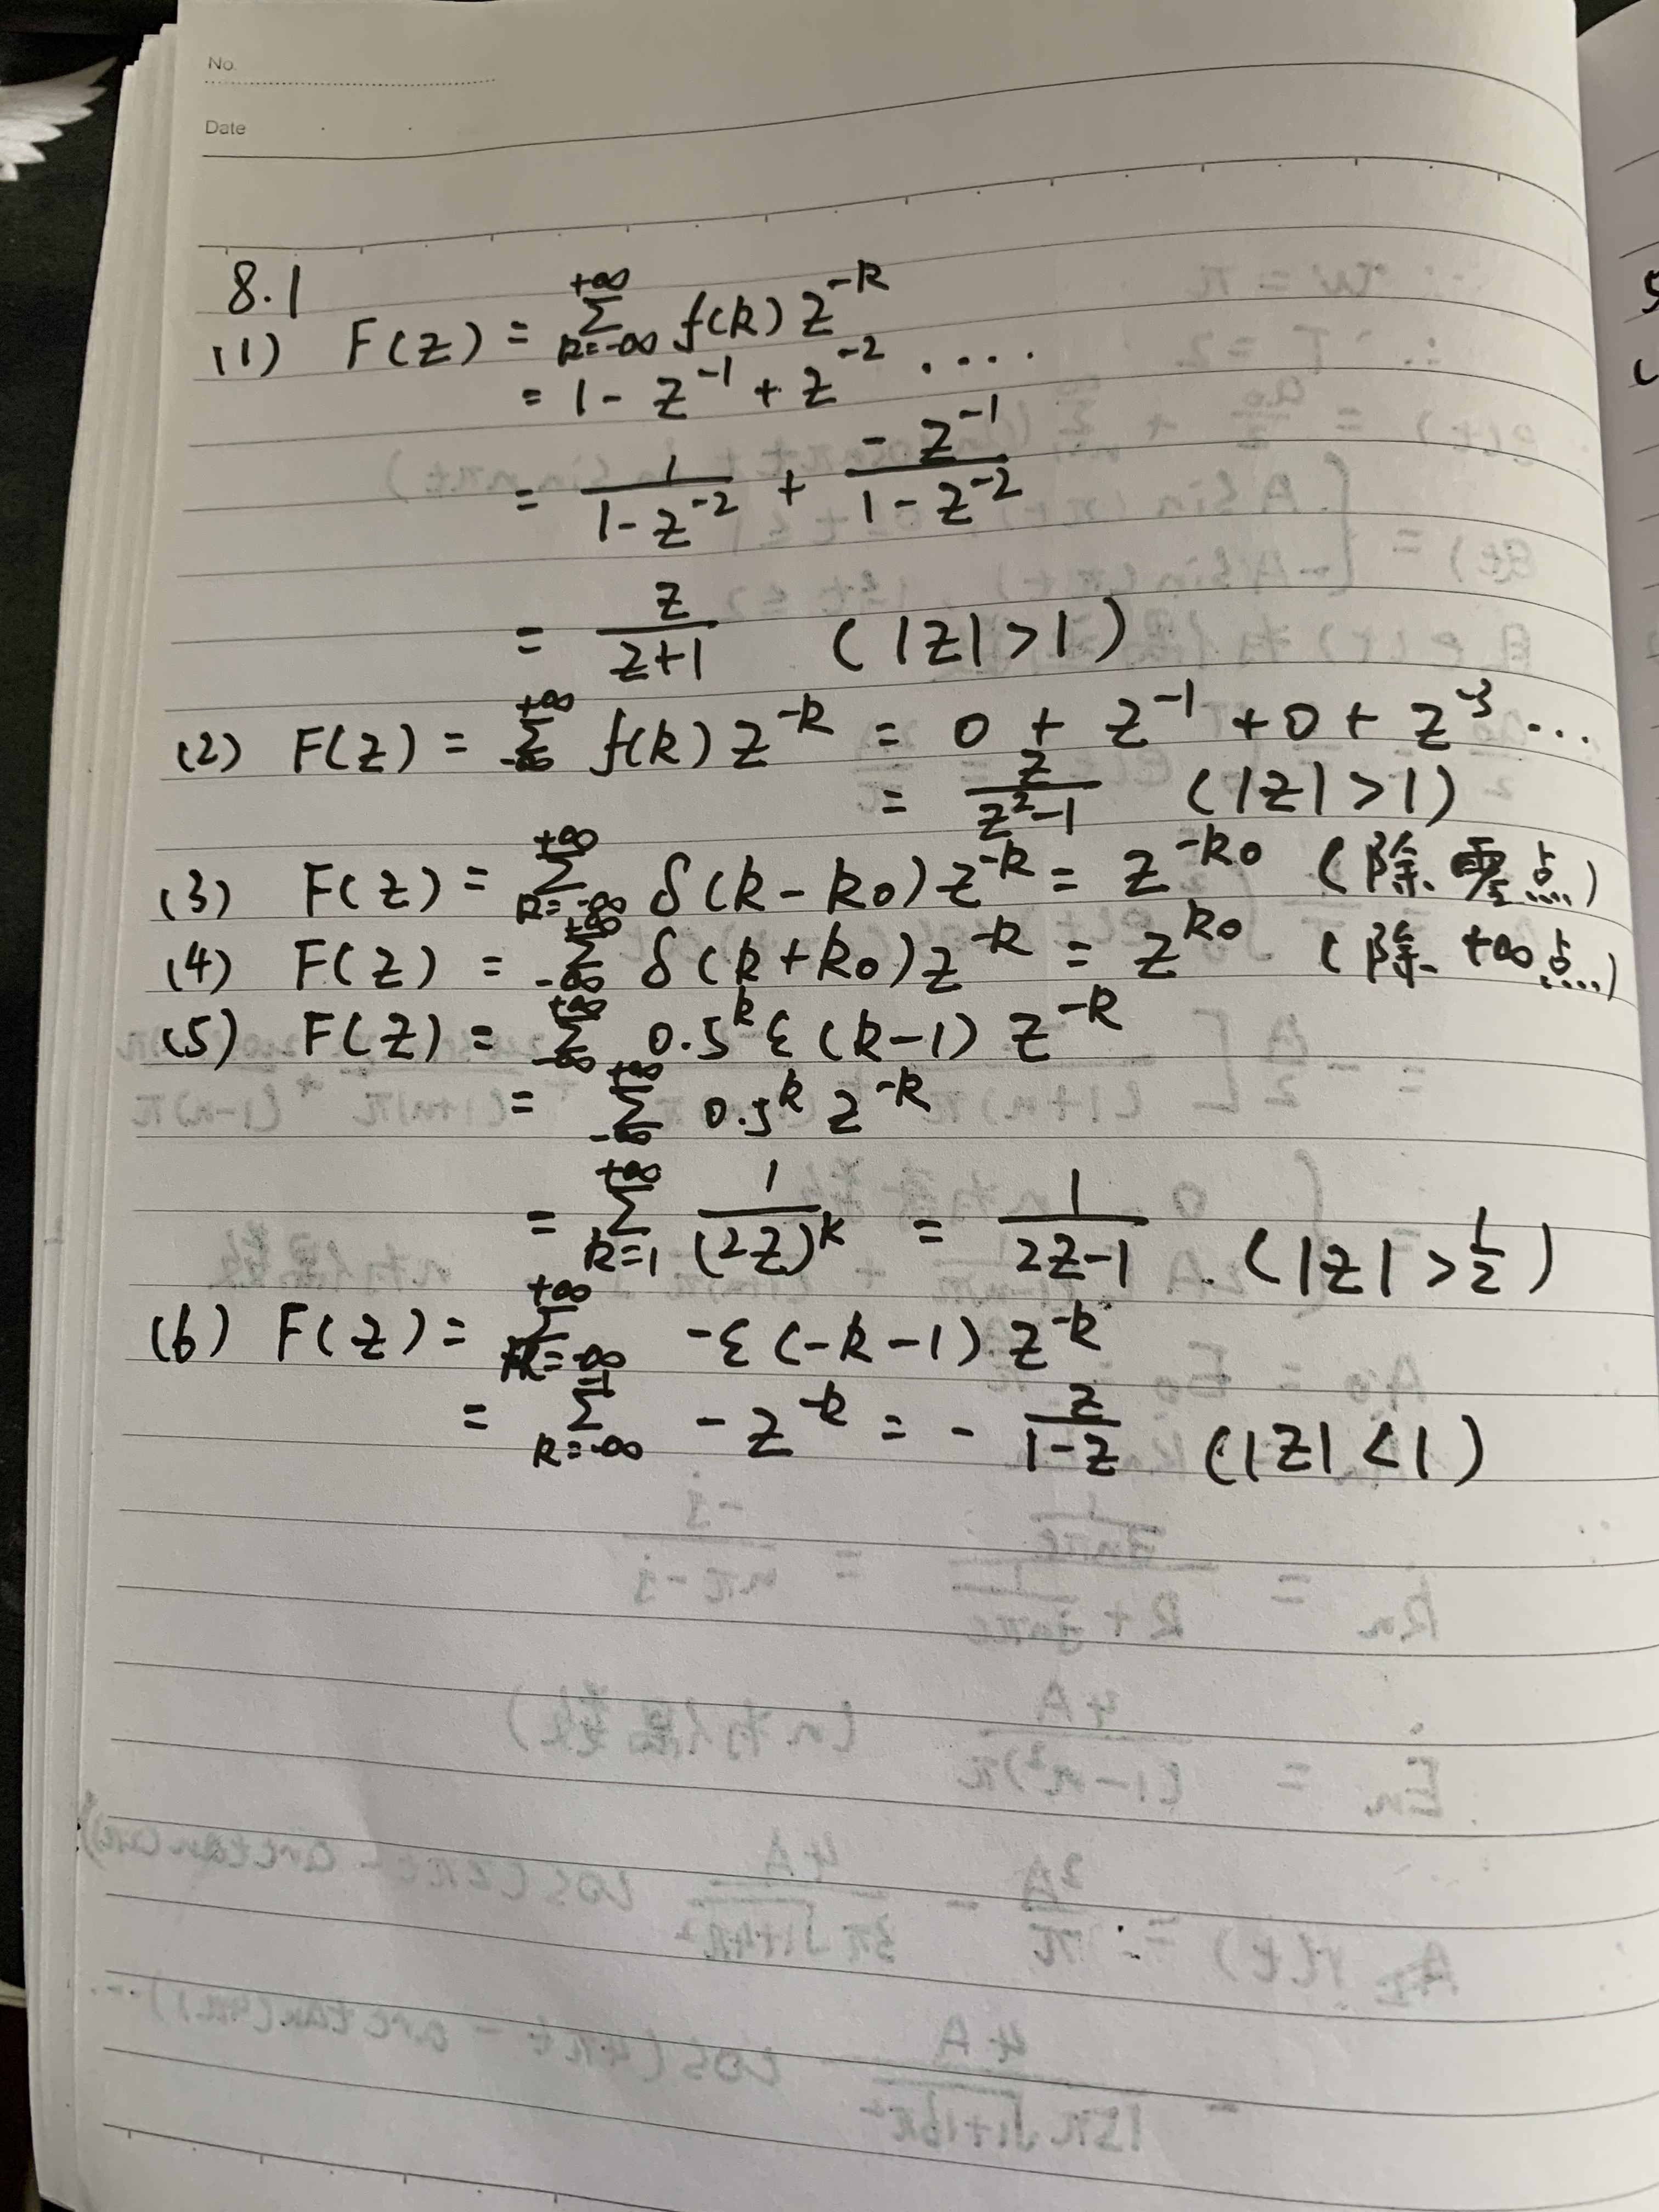 No.
Date
8.1
(1) F(z) = \sum_{k=-∞}^{+∞} f(k) z^{-k}
= 1 - z^{-1} + z^{-2} ....
= \frac{1}{1-z^{-2}} + \frac{-z^{-1}}{1-z^{-2}}
= \frac{z}{z+1} (|z|>1)
(2) F(z) = \sum_{-∞}^{+∞} f(k) z^{-k} = 0 + z^{-1} + 0 + z^{-3} ...
= \frac{z}{z^2-1} (|z|>1)
(3) F(z) = \sum_{k=-∞}^{+∞} δ(k-k0) z^{-k} = z^{-k0} (除零点)
(4) F(z) = \sum_{-∞}^{+∞} δ(k+k0) z^{-k} = z^{k0} (除+∞点)
(5) F(z) = \sum_{-∞}^{+∞} 0.5^k ε(k-1) z^{-k}
= \sum_{-∞}^{+∞} 0.5^k z^{-k}
= \sum_{k=1}^{+∞} \frac{1}{(2z)^k} = \frac{1}{2z-1} . (|z|>\frac{1}{2})
(6) F(z) = \sum_{k=-∞}^{+∞} -ε(-k-1) z^{-k}
= \sum_{k=-∞}^{-1} -z^{-k} = -\frac{z}{1-z} (|z|<1)